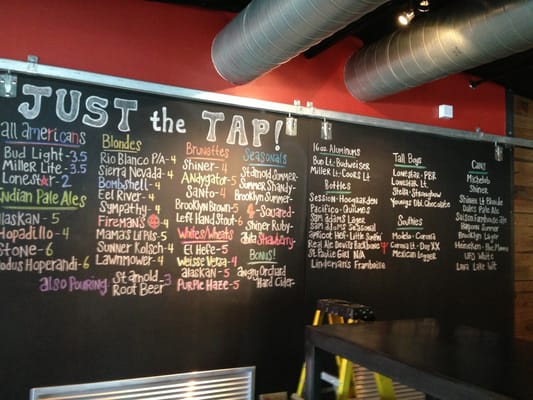 JUST the TAP!
all americans
Bud Light - 3.5
Miller Lite - 3.5
Lonestar - 2
Indian Pale Ales
Alaskan - 5
Hopadillo - 4
Stone - 6
Modus Hoperandi - 6
Blondes
Rio Blanco P/A - 4
Sierra Nevada - 4
Bombshell - 4
Eel River - 4
Sympathy - 4
Fireman's - 4
Mama's Lil Pils - 5
Sunner Kolsch - 4
Lawnmower - 4
also Pouring
St Arnold
Root Beer - 3
Brunettes
Shiner - 4
Andygator - 5
Santo - 4
Brooklyn Brown - 5
Left Hand Stout - 5
Whites/Wheats
El Hefe - 5
Weisse Versa - 4
alaskan - 5
Purple Haze - 5
Seasonals
St Arnold Summer - 4
Summer Shandy
Brooklyn Summer
4-Squared
Shiner Ruby
Abita Strawberry
Bonus!
Angry Orchard
Hard Cider
16 oz. Aluminums
Bud Light - Budweiser
Miller Lt - Coors Lt
Bottles
Session - Hoegaarden
Pacifico - Guiness
Sam Adams Lager
Sam Adams Seasonal
Real Ale Devil's Backbone
St Paulie Girl N/A
Lindeman's Framboise
Tall Boys
Lonestar - PBR
Lonestar Lt.
Youngs Dbl Chocolate
Modelo - Corona
Corona Lt - Dos XX
Mexican Logger
Cans
Michelob
Shiner
Dales Pale Ale
Ranger Summer
Brooklyn Lager
Heineken - The Mann
UFO White
Lava Lake Wit